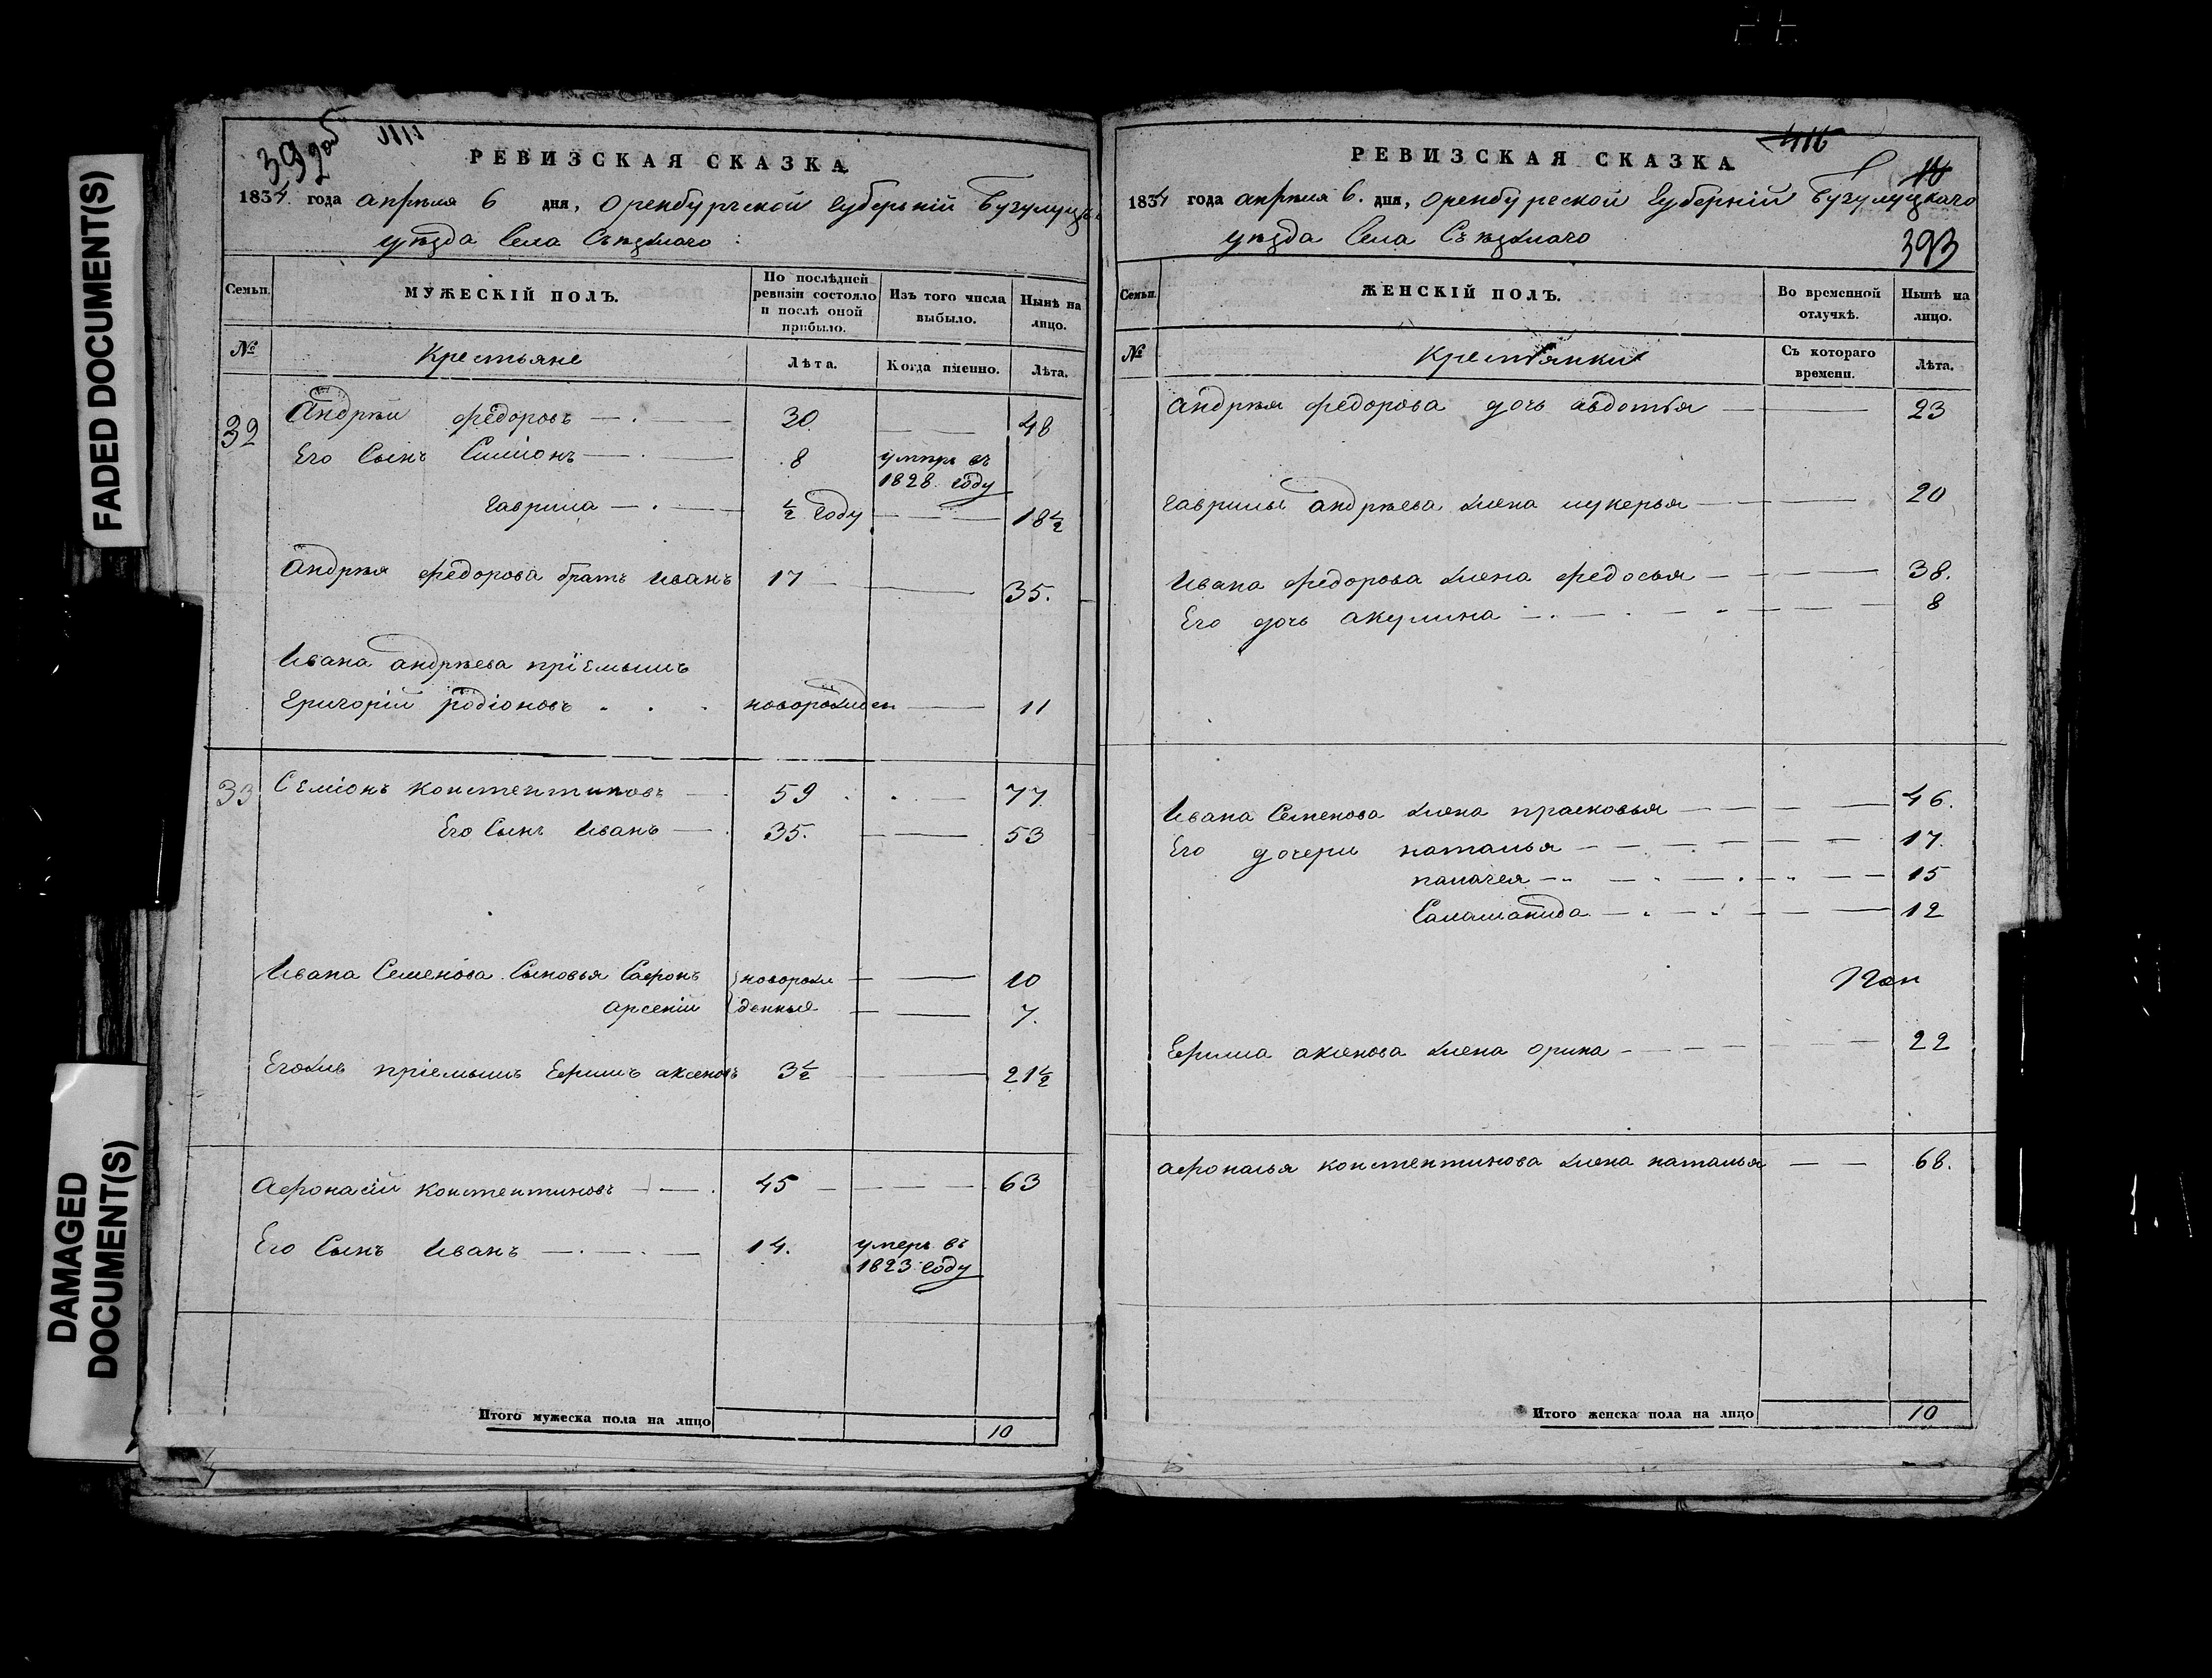 FADED DOCUMENT(S)
DAMAGED
DOCUMENT(S)
392об
РЕВИЗСКАЯ СКАЗКА
1834 года апрѣля 6 дня, Оренбургской Губерьніи Бузулуцка
уѣзда Села Съѣзжаго
Семьи.
МУЖЕСКІЙ ПОЛЪ.
По послѣдней ревизіи состояло и послѣ оной прибыло.
Изъ того числа выбыло.
Нынѣ на лицо.
№
Крестьяне
Лѣта.
Когда именно.
Лѣта.
32 Андрѣи федоровъ 30 48
Его Сынъ Симіонъ 8 умѣръ въ
1828 году
гаврила ½ году 18½
Андрѣя федорова братъ Иванъ 17 35.
Ивана андрѣева пріемышъ
григорій родіоновъ новорожден 11
33 Семіонъ константиновъ 59 77
Его Сынъ Иванъ 35. 53
Ивана Семенова Сыновья Сафонъ новорож 10
арсеній денные 7.
Егожъ пріемышъ Ефимъ аксеновъ 3½ 21½
Афонасій константиновъ 45 63
Его Сынъ Иванъ 14. умеръ въ
1823 году
Итого мужеска пола на лицо 10
РЕВИЗСКАЯ СКАЗКА
416
1834 года апрѣля 6. дня, Оренбургской Губерніи Бузулуцкаго
уѣзда Села Съѣзжаго
393
Семьи.
ЖЕНСКІЙ ПОЛЪ.
Во временной отлучкѣ.
Нынѣ на лицо.
№
Крестьянки
Съ котораго времени.
Лѣта.
андрѣя федорова дочь авдотья 23
гаврилы андрѣева жена лукерья 20
Ивана федорова жена федосья 38.
Его дочь акулина 8
Ивана Семенова жена прасковья 46.
Его дочери наталья 17.
палагея 15
Саламанида 12
Ефима аксенова жена орина 22
афонасья константинова жена наталья 68.
Итого женска пола на лицо 10